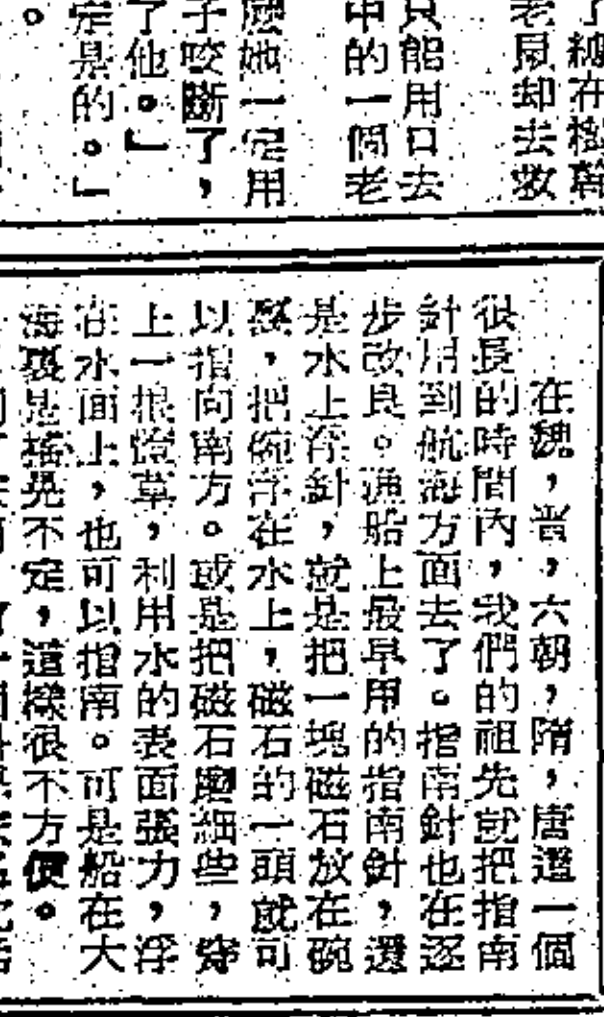 了綁在樹幹
老鼠却去救
只能用口去
中的一個老
她一定用
子咬斷了，
了他。」
定是的。」
。
在魏，晋，六朝，隋，唐這一個
很長的時間內，我們的祖先就把指南
針用到航海方面去了。指南針也在逐
步改良。漁船上最早用的指南針，還
是水上浮針，就是把一塊磁石放在碗
裏，把碗浮在水上，磁石的一頭就可
以指向南方。或是把磁石磨細些，穿
上一根燈草，利用水的表面張力，浮
在水面上，也可以指南。可是船在大
海裏是搖晃不定，這樣很不方便。